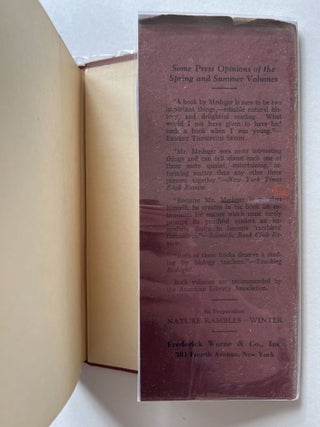 Some Press Opinions of the
Spring and Summer Volumes
"A book by Medsger is sure to be two
important things,—reliable natural his-
tory, and delightful reading. What
would I not have given to have had
such a book when I was young."—
ERNEST THOMPSON SETON.
"Mr. Medsger sees more interesting
things and can tell about each one of
them more quaint, entertaining, in-
forming matter than any other three
persons together."—New York Times
Book Review.
"Because Mr. Medsger is
himself, he creates in his book an en-
thusiasm for nature which must surely
compel its youthful readers
to become 'ramblers'
themselves."—Scientific Book Club Re-
view.
"Both of these books deserve a read-
ing by biology teachers."—Teaching
Biologist.
Both volumes are recommended by
the American Library Association.
In Preparation
NATURE RAMBLES—WINTER
Frederick Warne & Co., Inc.
381 Fourth Avenue, New York